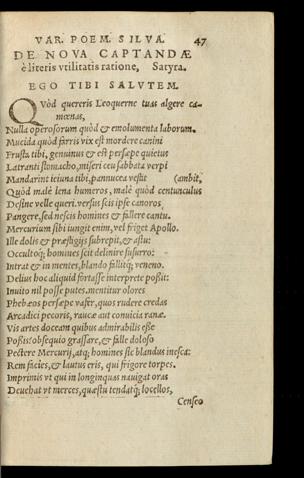 VAR. POEM. SILVA. 47
DE NOVA CAPTANDÆ
è literis vtilitatis ratione, Satyra.
EGO TIBI SALVTEM.
QVòd quereris Leoquerne tuas algere ca-
mœnas,
Nulla operosorum quòd & emolumenta laborum.
Mucida quòd farris vix est mordere canini
Frusta tibi, genuinus & est persæpe quietus
Latranti stomacho, miseri ceu sabbata verpi
Mandarint ieiuna tibi, pannucea vestit (ambit,
Quòd malè lena humeros, malè quòd centunculus
Desine velle queri. versus scis ipse canoros
Pangere, sed nescis homines & fallere cantu.
Mercurium sibi iungit enim, vel friget Apollo.
Ille dolis & præstigijs subrepit, & astu:
Occultoq; homines scit delinire susurro:
Intrat & in mentes, blando fallitq; veneno.
Delius hoc aliquid fortasse interprete possit:
Inuito nil posse putes. mentitur olores
Phebæos persæpe vafer, quos rudere credas
Arcadici pecoris, raucæ aut conuicia ranæ.
Vis artes doceam quibus admirabilis esse
Possis? obsequio grassare, & falle doloso
Pectore Mercurij, atq; homines sic blandus inesca:
Rem facies, & lautus eris, qui frigore torpes.
Imprimis vt qui in longinquas nauigat oras
Deuehat vt merces, quæstu tendatq; locellos,
Censeo